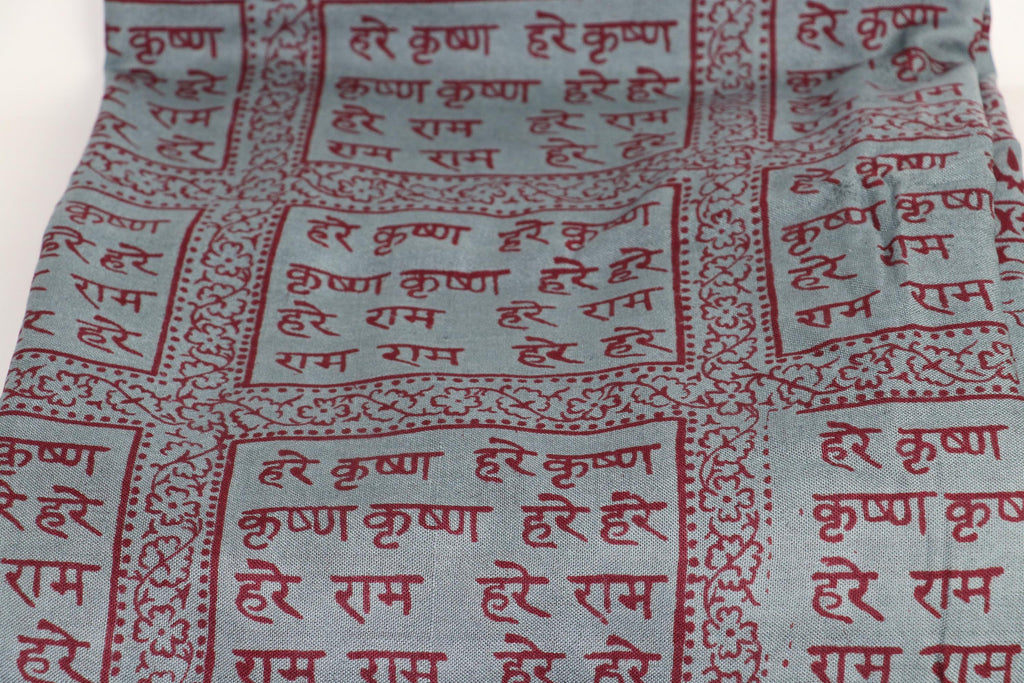 हरे कृष्ण हरे कृष्ण
कृष्ण कृष्ण हरे हरे
हरे राम हरे राम
राम राम हरे हरे
कृष्ण
हरे
राम
हरे
हरे कृष्ण
हरे राम
हरे कृष्ण हरे कृष्ण
कृष्ण कृष्ण हरे हरे
हरे राम हरे राम
राम राम हरे हरे
हरे कृष्ण
हरे हरे
राम
हरे
हरे कृष्ण
कृष्ण कृष्ण
हरे राम
राम राम
हरे कृष्ण हरे कृष्ण
कृष्ण कृष्ण हरे हरे
हरे राम हरे राम
राम राम हरे हरे
कृष्ण
हरे हरे
राम
हरे
हरे कृष्ण
कृष्ण कृष्ण
हरे राम
राम राम